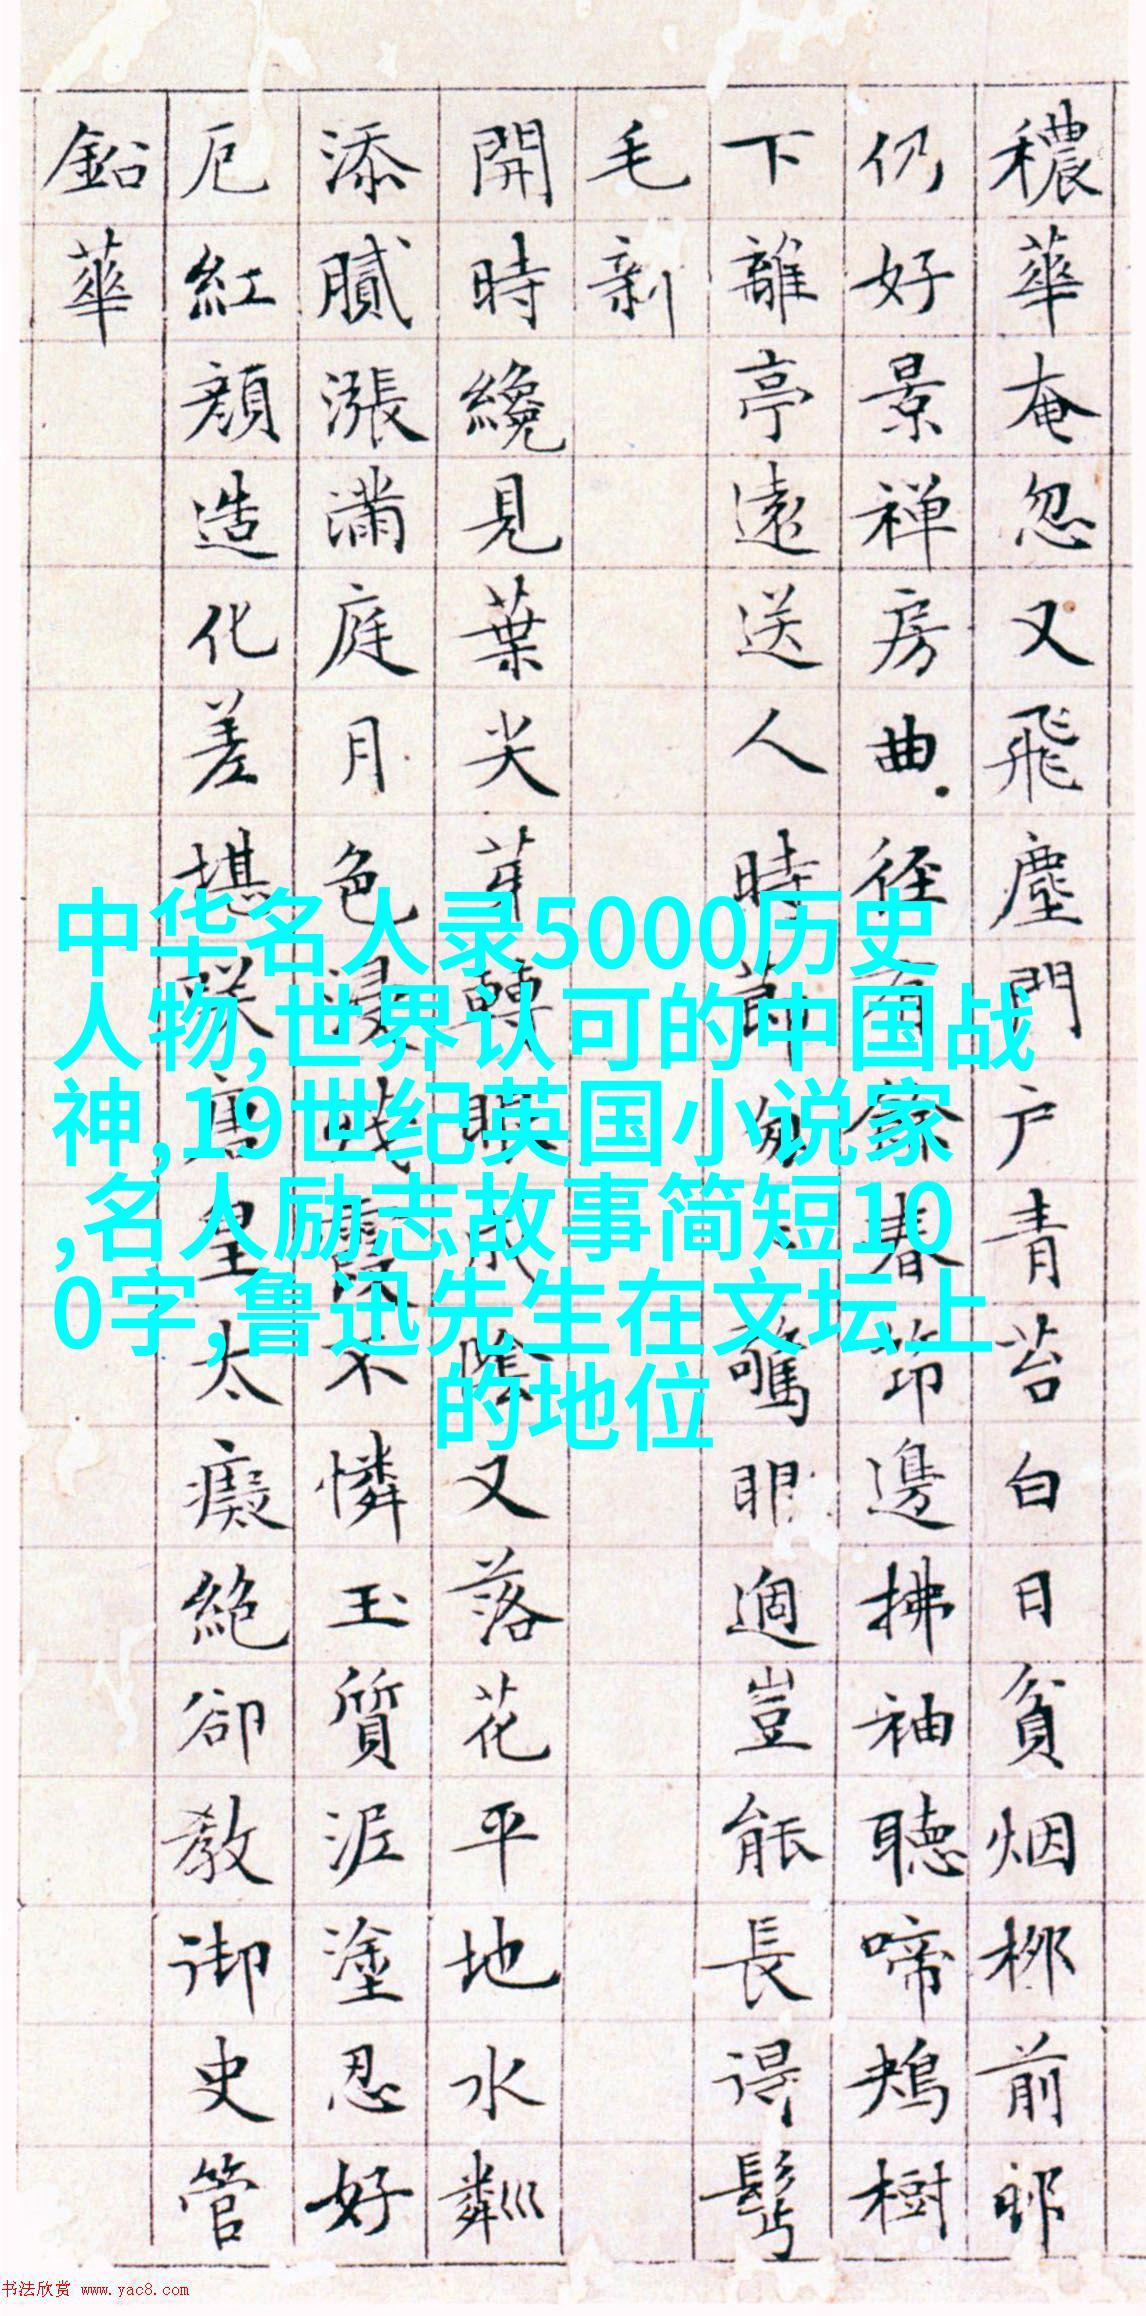 穠華奄忽又飛塵門戶青苔白日貧烟柳前邨
仍好景禅房曲径春笻邊拂袖聽啼鴂樹
下離亭遠送人時節驚眼適豈能長得鬢
毛新
開時纔見葉尖芽轉眼成陰又落花平地水粼巛
添膩漲滿庭月色浸殘霞不憐玉質泥塗忍好
卮紅顏造化差堪皇太癡絕卻教御史管
鉛華
中华名人录5000历史
人物,世界认可的中国战
神,19世纪英国小说家
,名人励志故事简短10
0字,鲁迅先生在文坛上
的地位
书法欣赏 www.yac8.com